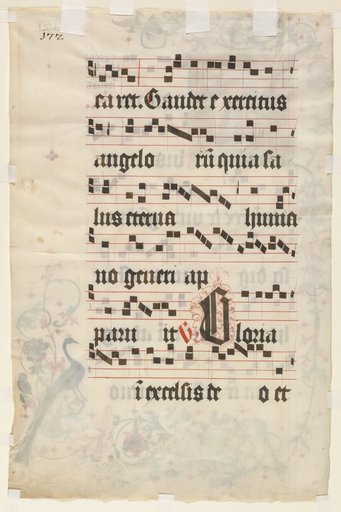 177.
ca ret. Gaudet e xercitus
angelo rū quia sa
lus eterna huma
no generi ap
paru it G Gloria
ī excelsis de o et